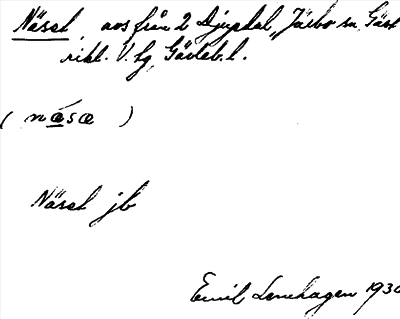 Näset, avs från 2 Djupdal, Järbo sn, Gästrikl. V. hg, Gävleb. l.
( næsæ )
Näset jb
Emil Lenhagen 1930